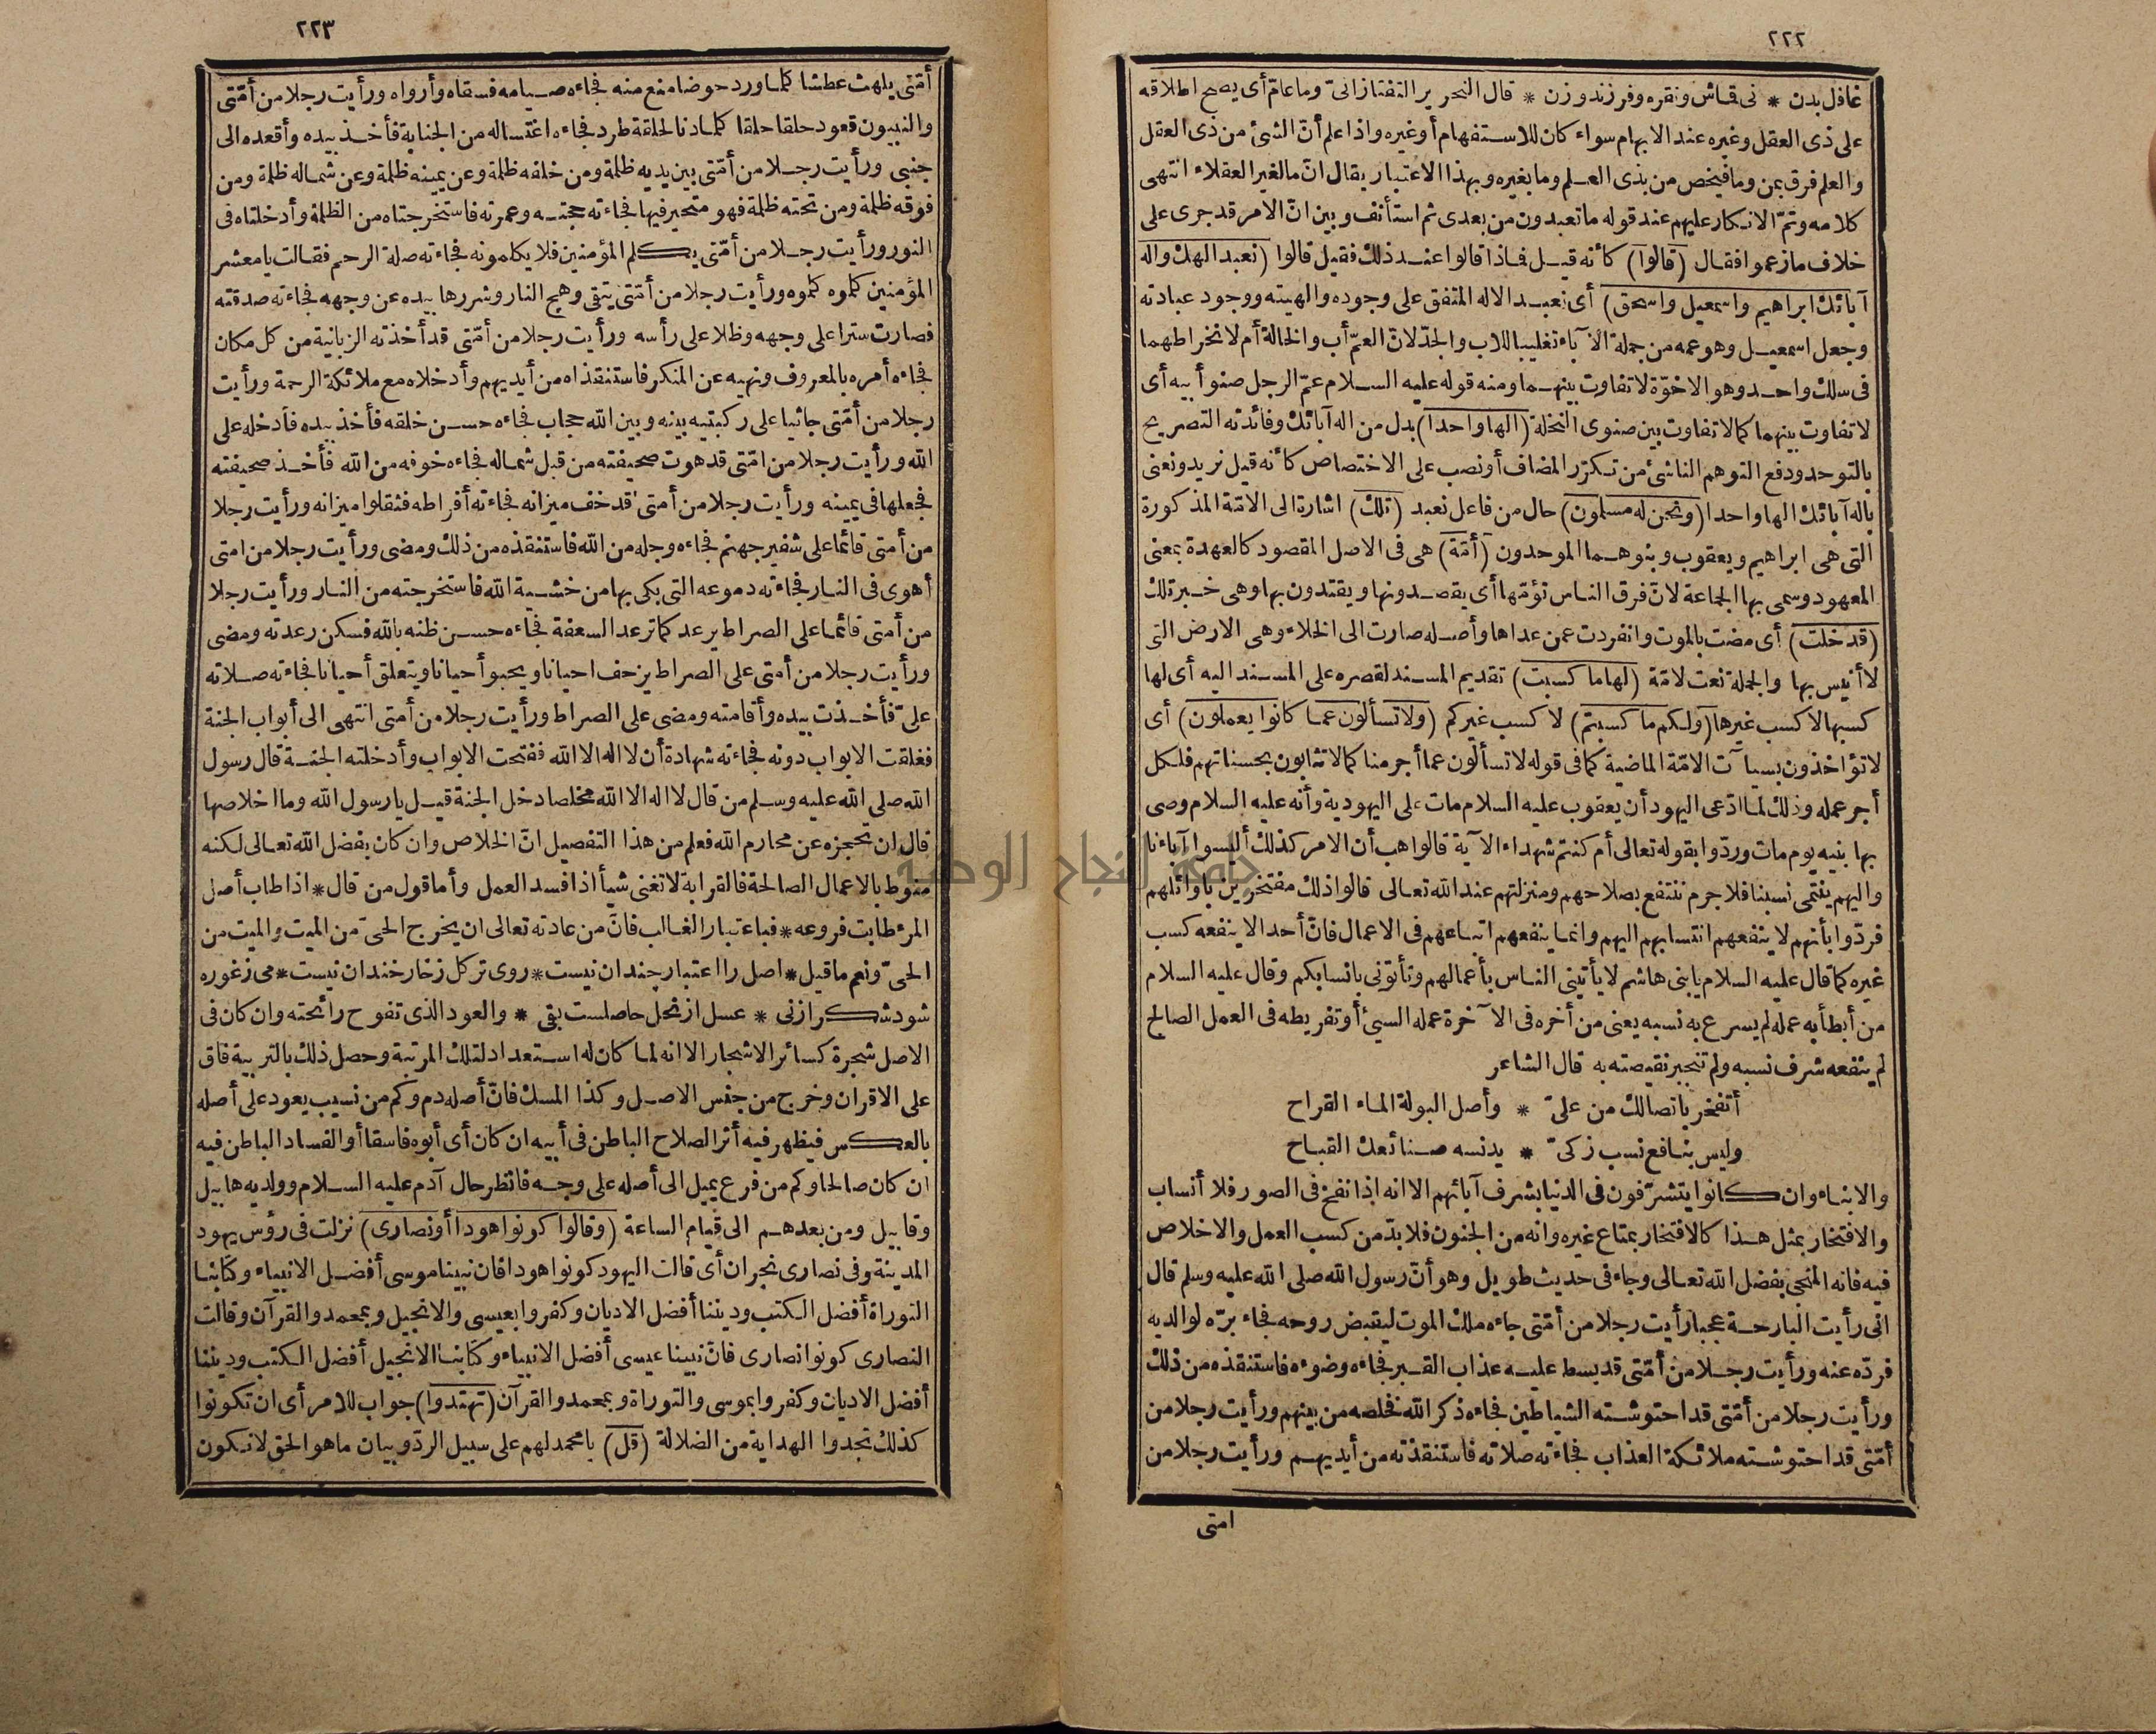 ٢٢٢
غافل بدن * نى قماش ونقره وفرزند وزن * قال النحرير التفتازانىّ وما عامّ أى يصح اطلاقه
على ذى العقل وغيره عند الابهام سواء كان للاستفهام أو غيره واذا علم أنّ الشئ من ذى العقل
والعلم فرق بمن وما فيخص من بذى العلم وما بغيره وبهذا الاعتبار يقال انّ ما لغير العقلاء انتهى
كلامه وتمّ الانكار عليهم عند قوله ما تعبدون من بعدى ثم استأنف وبين انّ الامر قد جرى على
خلاف ما زعموا فقال (قالوا) كأنه قيل فماذا قالوا عند ذلك فقيل قالوا (نعبد الهك واله
آبائك ابراهيم واسمعيل واسحق) أى نعبد الاله المتفق على وجوده والهيته ووجود عبادته
وجعل اسمعيل وهو عمه من جملة الآباء تغليبا للاب والجدّ لانّ العمّ أب والخالة أم لانخراطهما
فى سلك واحد وهو الاخوّة لا تفاوت بينهما ومنه قوله عليه السلام عمّ الرجل صنو أبيه أى
لا تفاوت بينهما كما لا تفاوت بين صنوى النخلة (الها واحدا) بدل من اله آبائك وفائدته التصريح
بالتوحد ودفع التوهم الناشئ من تكرّر المضاف أو نصب على الاختصاص كأنه قيل نريد ونعنى
باله آبائك الها واحدا (ونحن له مسلمون) حال من فاعل نعبد (تلك) اشارة الى الامّة المذكورة
التى هى ابراهيم ويعقوب وبنوهما الموحدون (أمّة) هى فى الاصل المقصود كالعهدة بمعنى
المعهود وسمى بها الجماعة لانّ فرق الناس تؤمّها أى يقصدونها ويقتدون بها وهى خبر تلك
(قد خلت) أى مضت بالموت وانفردت عمن عداها وأصله صارت الى الخلاء وهى الارض التى
لا أنيس بها والجملة نعت لامّة (لها ما كسبت) تقديم المسند لقصره على المسند اليه أى لها
كسبها لا كسب غيرها (ولكم ما كسبتم) لا كسب غيركم (ولا تسألون عما كانوا يعملون) أى
لا تؤاخذون بسيآت الامّة الماضية كما فى قوله لا تسألون عما أجرمنا كما لا تثابون بحسناتهم فلكل
أجر عمله وذلك لما ادّعى اليهود أن يعقوب عليه السلام مات على اليهودية وأنه عليه السلام وصى
بها بنيه يوم مات وردّوا بقوله تعالى أم كنتم شهداء الآية قالوا هب أن الامر كذلك أليسوا آباءنا
واليهم ينتمى نسبنا فلا جرم ننتفع بصلاحهم ومنزلتهم عند الله تعالى قالوا ذلك مفتخرين بأوائلهم
فردّوا بأنهم لا ينفعهم انتسابهم اليهم وانما ينفعهم اتباعهم فى الاعمال فانّ أحدا لا ينفعه كسب
غيره كما قال عليه السلام يا بنى هاشم لا يأتينى الناس بأعمالهم وتأتونى بانسابكم وقال عليه السلام
من أبطأ به عمله لم يسرع به نسبه يعنى من أخره فى الآخرة عمله السيئ أو تفريطه فى العمل الصالح
لم ينفعه شرف نسبه ولم تنجبر نقيصته به قال الشاعر
أتفخر باتصالك من علىّ * وأصل البولة الماء القراح
وليس بنافع نسب زكىّ * يدنسه صنائعك القباح
والابناء وان كانوا يتشرّفون فى الدنيا بشرف آبائهم الا انه اذا نفخ فى الصور فلا أنساب
والافتخار بمثل هذا كالافتخار بمتاع غيره وانه من الجنون فلا بدّ من كسب العمل والاخلاص
فيه فانه المنجى بفضل الله تعالى وجاء فى حديث طويل وهو أنّ رسول الله صلى الله عليه وسلم قال
انى رأيت البارحة عجبا رأيت رجلا من أمّتى جاءه ملك الموت ليقبض روحه فجاء برّه لوالديه
فردّه عنه ورأيت رجلا من أمّتى قد بسط عليه عذاب القبر فجاءه وضوءه فاستنقذه من ذلك
ورأيت رجلا من أمّتى قد احتوشته الشياطين فجاءه ذكر الله فخلصه من بينهم ورأيت رجلا من
أمّتى قد احتوشته ملائكة العذاب فجاءته صلاته فاستنقذته من أيديهم ورأيت رجلا من
امتى
٢٢٣
أمّتى يلهث عطشا كلما ورد حوضا منع منه فجاءه صيامه فسقاه وأرواه ورأيت رجلا من أمّتى
والنبيون قعود حلقا حلقا كلما دنا لحلقة طرد فجاءه اغتساله من الجنابة فأخذ بيده وأقعده الى
جنبى ورأيت رجلا من أمّتى بين يديه ظلمة ومن خلفه ظلمة وعن يمينه ظلمة وعن شماله ظلمة ومن
فوقه ظلمة ومن تحته ظلمة فهو متحير فيها فجاءته حجته وعمرته فاستخرجتاه من الظلمة وأدخلتاه فى
النور ورأيت رجلا من أمّتى يكلم المؤمنين فلا يكلمونه فجاءته صلة الرحم فقالت يا معشر
المؤمنين كلموه كلموه ورأيت رجلا من أمّتى يتقى وهج النار وشررها بيده عن وجهه فجاءته صدقته
فصارت سترا على وجهه وظلا على رأسه ورأيت رجلا من أمّتى قد أخذته الزبانية من كل مكان
فجاءه أمره بالمعروف ونهيه عن المنكر فاستنقذاه من أيديهم وأدخلاه مع ملائكة الرحمة ورأيت
رجلا من أمّتى جاثيا على ركبتيه بينه وبين الله حجاب فجاءه حسن خلقه فأخذ بيده فأدخله على
الله ورأيت رجلا من امّتى قد هوت صحيفته من قبل شماله فجاءه خوفه من الله فأخذ صحيفته
فجعلها فى يمينه ورأيت رجلا من أمتى قد خف ميزانه فجاءته أفراطه فثقلوا ميزانه ورأيت رجلا
من أمتى قائما على شفير جهنم فجاءه وجله من الله فاستنقذه من ذلك ومضى ورأيت رجلا من امتى
أهوى فى النار فجاءته دموعه التى بكى بها من خشية الله فاستخرجته من النار ورأيت رجلا
من أمتى قائما على الصراط يرعد كما ترعد السعفة فجاءه حسن ظنه بالله فسكن رعدته ومضى
ورأيت رجلا من أمتى على الصراط يزحف احيانا ويحبو أحيانا ويتعلق أحيانا فجاءته صلاته
علىّ فأخذت بيده وأقامته ومضى على الصراط ورأيت رجلا من أمتى انتهى الى أبواب الجنة
فغلقت الابواب دونه فجاءته شهادة أن لا اله الا الله ففتحت الابواب وأدخلته الجنة قال رسول
الله صلى الله عليه وسلم من قال لا اله الا الله مخلصا دخل الجنة قيل يا رسول الله وما اخلاصها
قال ان تحجزه عن محارم الله فعلم من هذا التفصيل انّ الخلاص وان كان بفضل الله تعالى لكنه
منوط بالاعمال الصالحة فالقرابة لا تغنى شيأ اذا فسد العمل وأما قول من قال * اذا طاب أصل
المرء طابت فروعه * فباعتبار الغالب فانّ من عادته تعالى ان يخرج الحىّ من الميت والميت من
الحىّ ونعم ما قيل * اصل را اعتبار چندان نيست * روى تر كل زخار خندان نيست * مى زغوره
شود شكر ازنى * عسل از نحل حاصلست بقى * والعود الذى تفوح رائحته وان كان فى
الاصل شجرة كسائر الاشجار الا انه لما كان له استعداد لتلك المرتبة وحصل ذلك بالتربية فاق
على الاقران وخرج من جنس الاصل وكذا المسك فانّ أصله دم وكم من نسيب يعود على أصله
بالعكس فيظهر فيه أثر الصلاح الباطن فى أبيه ان كان أى أبوه فاسقا أو الفساد الباطن فيه
ان كان صالحا وكم من فرع يميل الى أصله على وجه فانظر حال آدم عليه السلام وولديه هابيل
وقابيل ومن بعدهم الى قيام الساعة (وقالوا كونوا هودا أو نصارى) نزلت فى رؤس يهود
المدينة وفى نصارى نجران أى قالت اليهود كونوا هودا فان نبينا موسى أفضل الانبياء وكتابنا
التوراة أفضل الكتب وديننا أفضل الاديان وكفروا بعيسى والانجيل وبمحمد والقرآن وقالت
النصارى كونوا نصارى فانّ نبينا عيسى أفضل الانبياء وكتابنا الانجيل أفضل الكتب وديننا
أفضل الاديان وكفروا بموسى والتوراة وبمحمد والقرآن (تهتدوا) جواب للامر أى ان تكونوا
كذلك تجدوا الهداية من الضلالة (قل) يا محمد لهم على سبيل الردّ وبيان ما هو الحق لا نكون
جامعة النجاح الوطنية